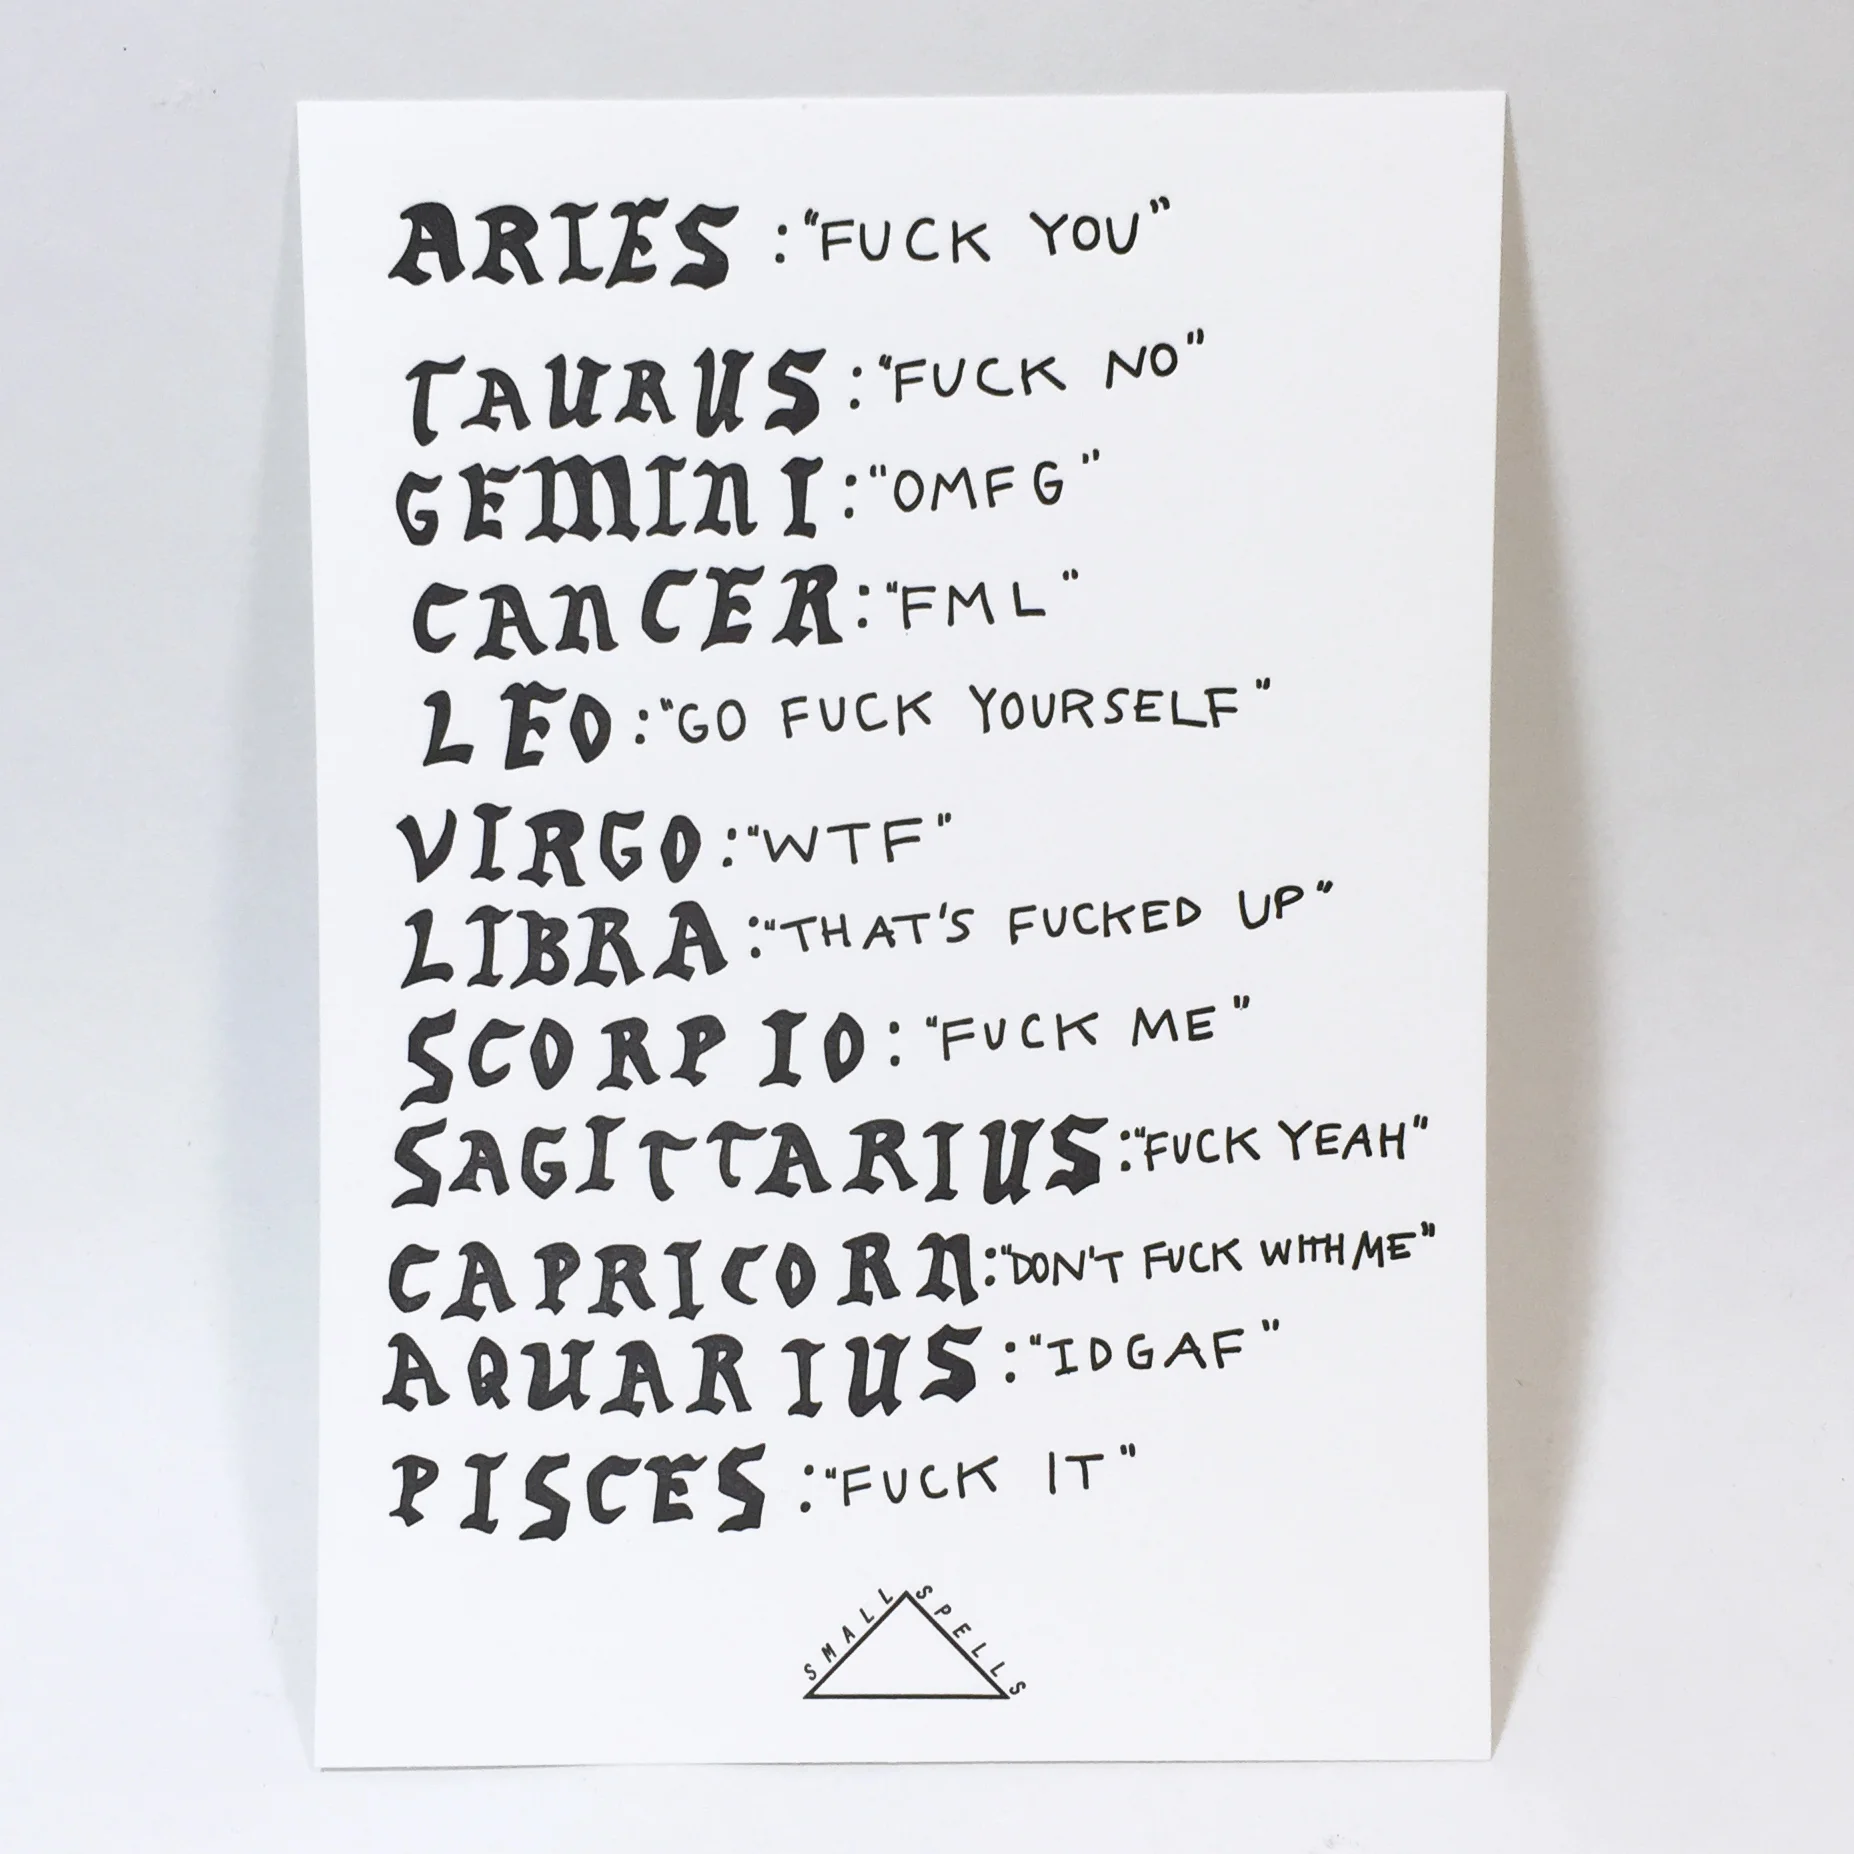 ARIES :"FUCK YOU"
TAURUS :"FUCK NO"
GEMINI :"OMFG"
CANCER :"FML"
LEO :"GO FUCK YOURSELF"
VIRGO :"WTF"
LIBRA :"THAT'S FUCKED UP"
SCORPIO :"FUCK ME"
SAGITTARIUS :"FUCK YEAH"
CAPRICORN :"DON'T FUCK WITH ME"
AQUARIUS :"IDGAF"
PISCES :"FUCK IT"
SMALL SPELLS